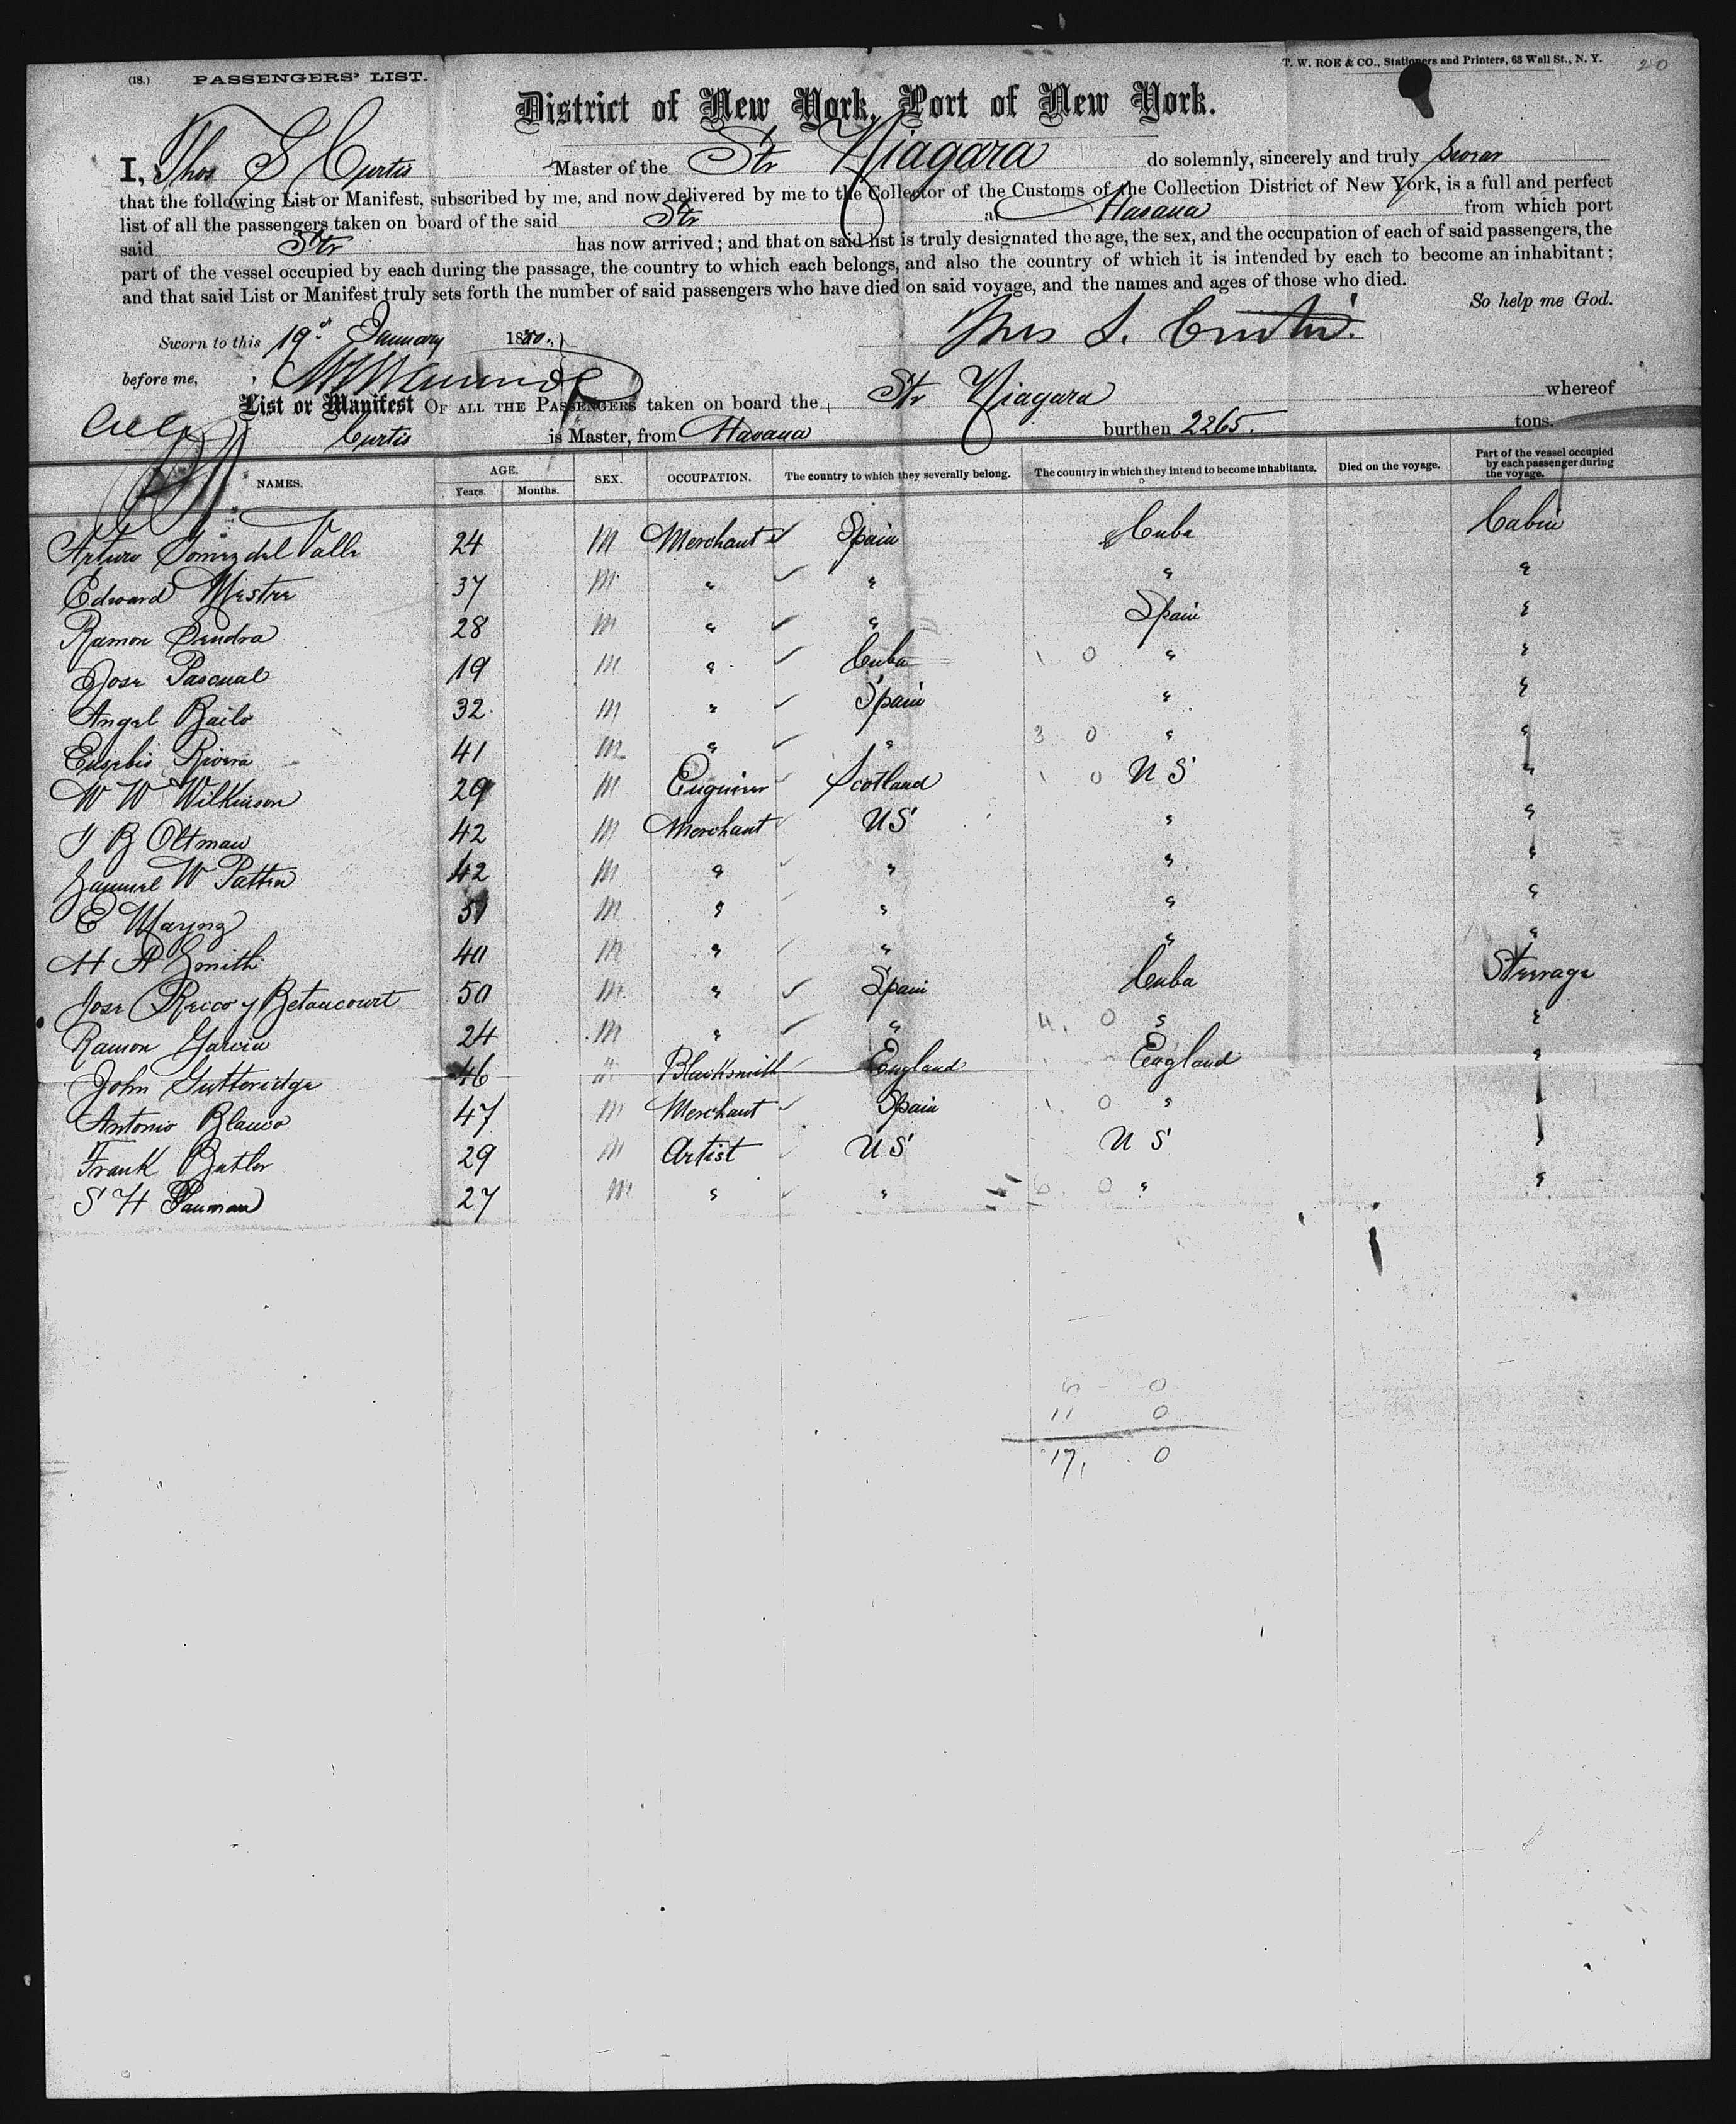 (18.) PASSENGERS' LIST.
T. W. ROE & CO., Stationers and Printers, 63 Wall St., N. Y.
20
District of New York, Port of New York.
I, Thos S Curtis Master of the Str Niagara do solemnly, sincerely and truly swear
that the following List or Manifest, subscribed by me, and now delivered by me to the Collector of the Customs of the Collection District of New York, is a full and perfect
list of all the passengers taken on board of the said Str at Havana from which port
said Str has now arrived; and that on said list is truly designated the age, the sex, and the occupation of each of said passengers, the
part of the vessel occupied by each during the passage, the country to which each belongs, and also the country of which it is intended by each to become an inhabitant;
and that said List or Manifest truly sets forth the number of said passengers who have died on said voyage, and the names and ages of those who died.
So help me God.
Sworn to this 19th January 1880. Thos S. Curtis.
before me,
List or Manifest OF ALL THE PASSENGERS taken on board the Str Niagara whereof
Curtis is Master, from Havana burthen 2265. tons.
NAMES. AGE. Years. Months. SEX. OCCUPATION. The country to which they severally belong. The country in which they intend to become inhabitants. Died on the voyage. Part of the vessel occupied by each passenger during the voyage.
Arturo Gomez del Valle 24 M Merchant Spain Cuba Cabin
Edward Mestre 37 M " " " "
Ramon Sendra 28 M " " Spain "
Jose Pascual 19 M " Cuba 1 0 " "
Angel Bailo 32 M " Spain " "
Eusebio Rivera 41 M " " 3 0 " "
W W Wilkinson 29 M Engineer Scotland 1 0 U S "
B Oltman 42 M Merchant US " "
Samuel W Patten 42 M " " " "
E Mayoz 51 M " " " "
H A Smith 40 M " " " "
Jose Recco y Betancourt 50 M " Spain Cuba Steerage
Ramon Garcia 24 M " " 4. 0 " "
John Gutteridge 46 M Blacksmith England England "
Antonio Blanco 47 M Merchant Spain 1. 0 " "
Frank Butler 29 M Artist U S U S "
S H Pauman 27 M " " 6. 0 " "
6 - 0
11 0
17, 0